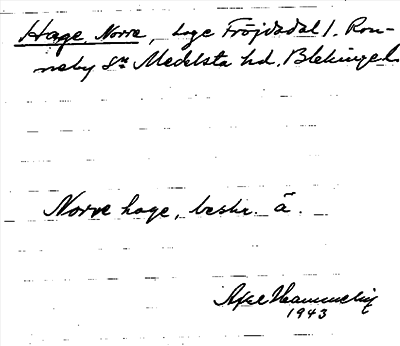 Hage, Norre, hage Fröjdadal 1. Ron-
neby sn Medelsta hd. Blekinge l.
Norre hage, beskr. å.
Axel Hammelig
1943